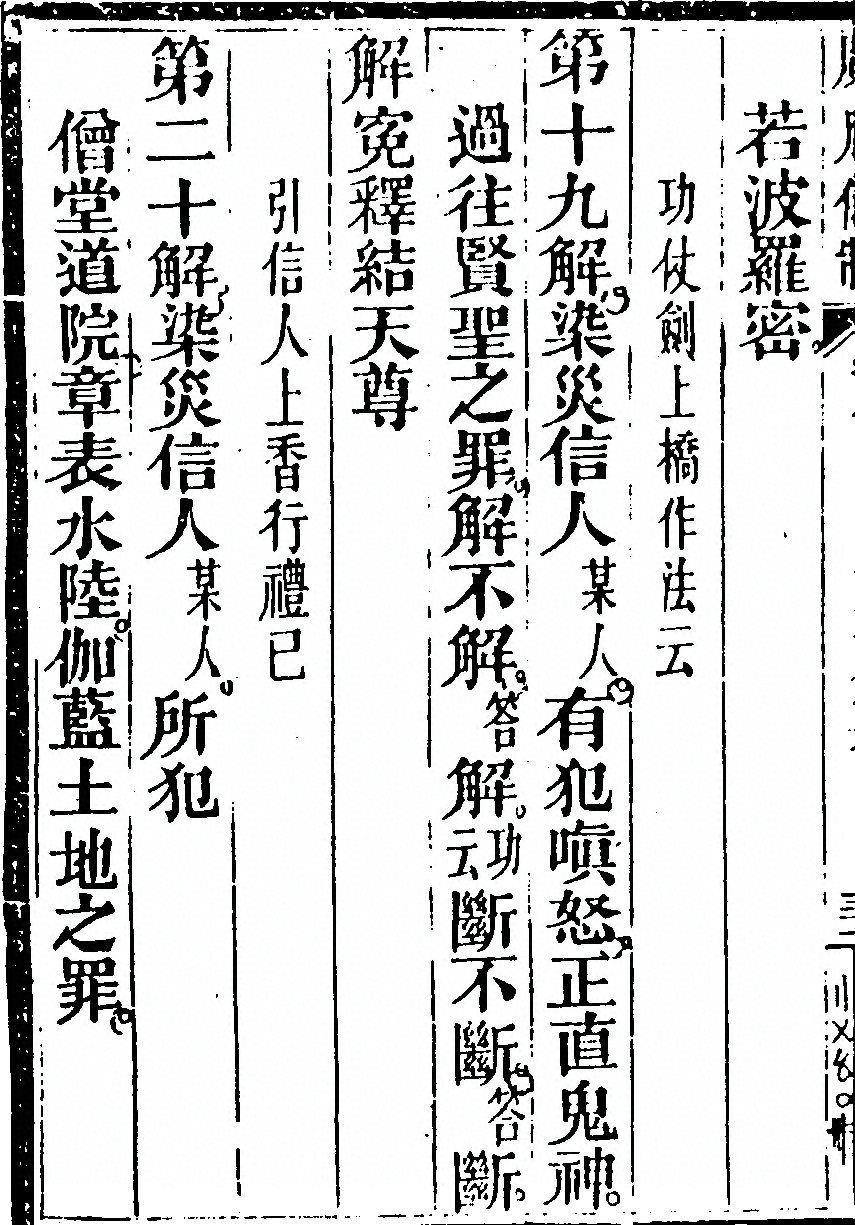 若波羅密
功仗劍上橋作法云
第十九解染災信人某人有犯嗔怒正直鬼神
過往賢聖之罪解不解答解功云斷不斷答斷
解寃釋結天尊
引信人上香行禮已
第二十解染災信人某人所犯
僧堂道院章表水陸伽藍土地之罪